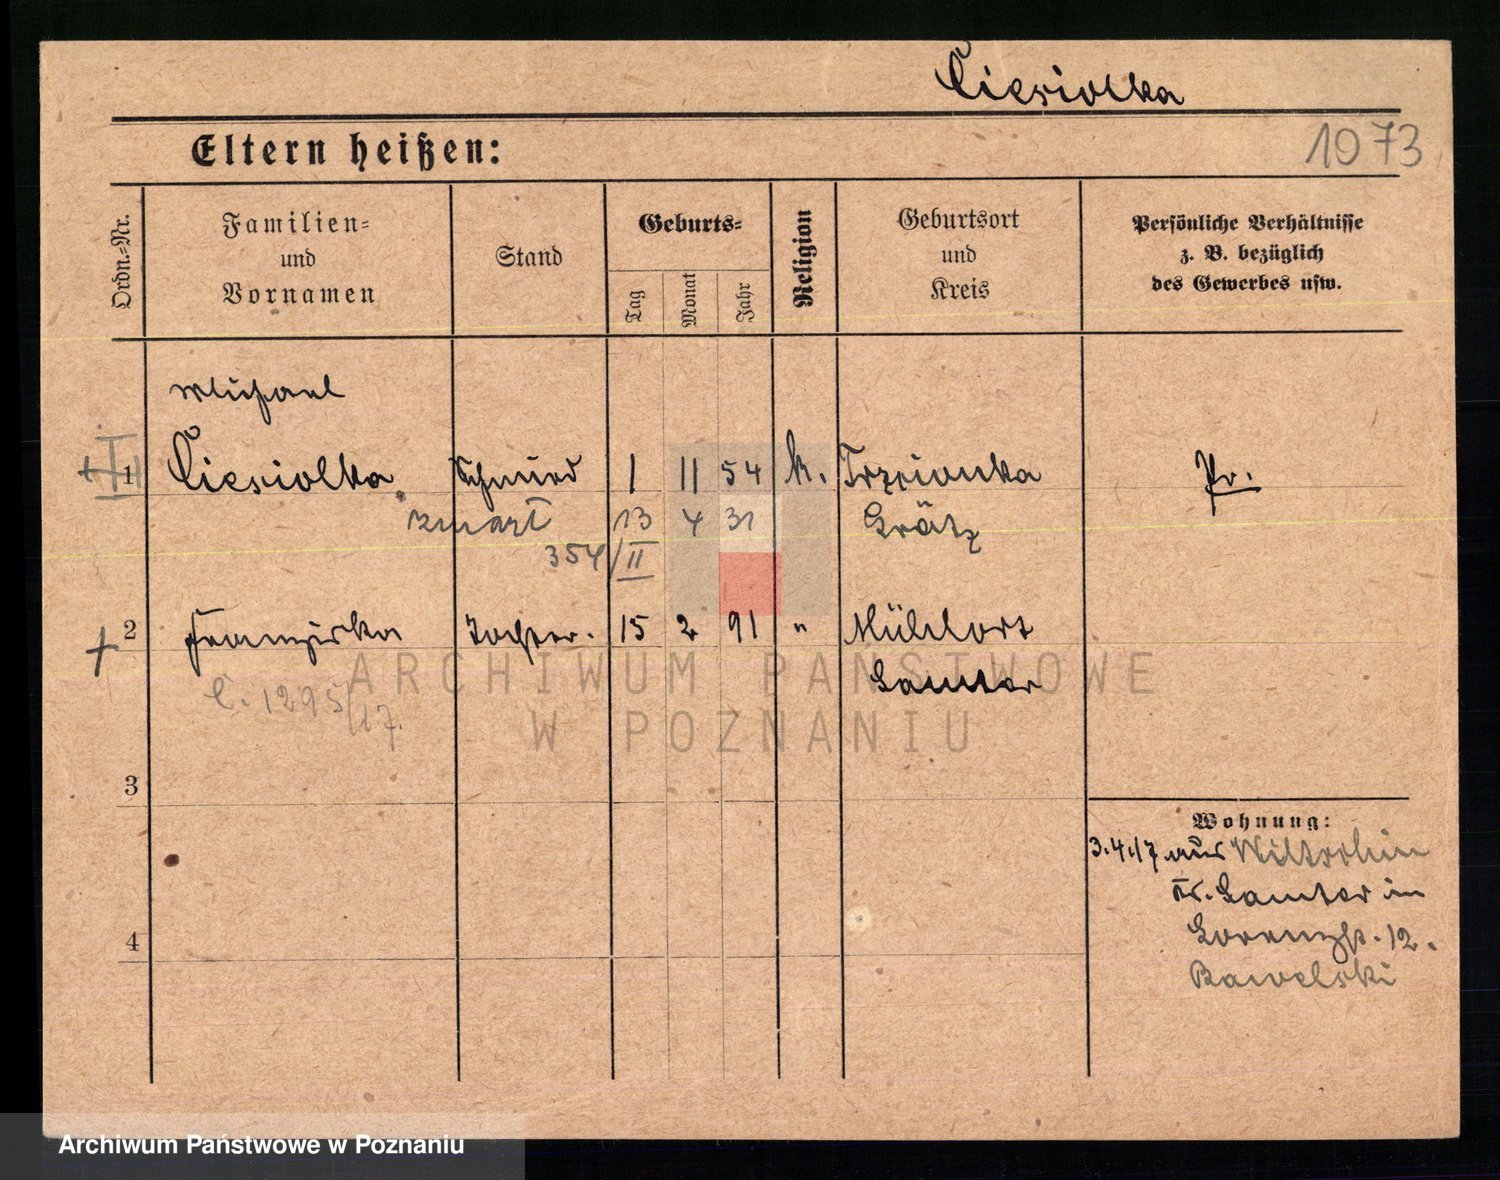 Ciesiolka
Eltern heißen:
1073
Ordn.-Nr.
Familien-
und
Vornamen
Stand
Geburts-
Tag
Monat
Jahr
Religion
Geburtsort
und
Kreis
Persönliche Verhältnisse
z. B. bezüglich
des Gewerbes usw.
Michael
1 Ciesiolka Schmied 1 11 54 k. Trzcionka Pr.
zmarł 13 4 31 Grätz
354/II
2 Franziska Tochter. 15 2 91 " Mühldorf
C. 1295/17. Samter
3
4
Wohnung:
3.4.17 aus
Kr. Samter in
Lorenzstr. 12.
Bawelski
ARCHIWUM PAŃSTWOWE
W POZNANIU
Archiwum Państwowe w Poznaniu